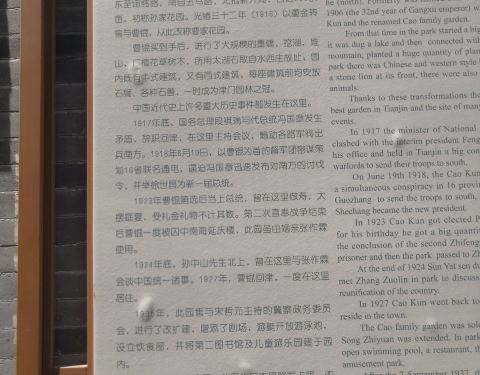 亩，初称孙家花园。光绪三十二年（1816）以重金转
售与曹锟，从此改称曹家花园。
曹锟买到手后，进行了大规模的重建，挖湖，堆
山，广植花草树木，所用太湖石取自水西庄故址，园
内既有中式建筑，又有西式建筑，每座建筑前均安放
石狮、各种石兽，一时成为津门园林之冠。
中国近代史上许多重大历史事件都发生在这里。
1917年底，国务总理段祺瑞与代总统冯国璋发生
矛盾，辞职回津，在这里主持会议，煽动各路军阀出
兵南方。1918年6月19日，以曹锟为首的督军团密谋策
划16省联名通电，逼迫冯国璋迅速发布对南方的讨伐
令，并举徐世昌为新一届总统。
1923年曹锟贿选后当上总统，曾在这里做寿，大
摆筵宴，受礼金礼物不计其数。第二次直奉战争结束
后曹锟一度被囚中南海延庆楼，此园遂由姻亲张作霖
使用。
1924年底，孙中山先生北上，曾在这里与张作霖
会谈中国统一诸事。1927年，曹锟回津，一度在这里
居住。
年，此园售与宋哲元主持的冀察政务委员
会，进行了改扩建，增添了剧场，游艇开放游泳池，
设立饮食部，并将第二图书馆及儿童游乐园建于园
内。
the (north). Formerly it was
1906 (the 32nd year of Gangxu emperor) w
Kun and the renamed Cao family garden.
From that time in the park started a big
it was dug a lake and then connected with
mountain, planted a huge quantity of plan
park there was Chinese and western style
a stone lion at its front, there were also
animals.
Thanks to these transformations the
best garden in Tianjin and the site of many
events.
In 1917 the minister of National
clashed with the interim president Feng
his office and held in Tianjin a big con
warlords to send their troops to south.
On June 19th 1918, the Cao Kun
a simultaneous conspiracy in 16 provin
Guozhang to send the troops to south,
Shechang became the new president.
In 1923 Cao Kun got elected P
for his birthday he got a big quantit
the conclusion of the second Zhifeng
prisoner and then the park passed to Zh
At the end of 1924 Sun Yat sen du
met Zhang Zuolin in park to discuss
reunification of the country.
In 1927 Cao Kun went back to
reside in the town.
The Cao family garden was sold
Song Zhiyuan was extended. In park
open swimming pool, a restaurant, th
amusement park.